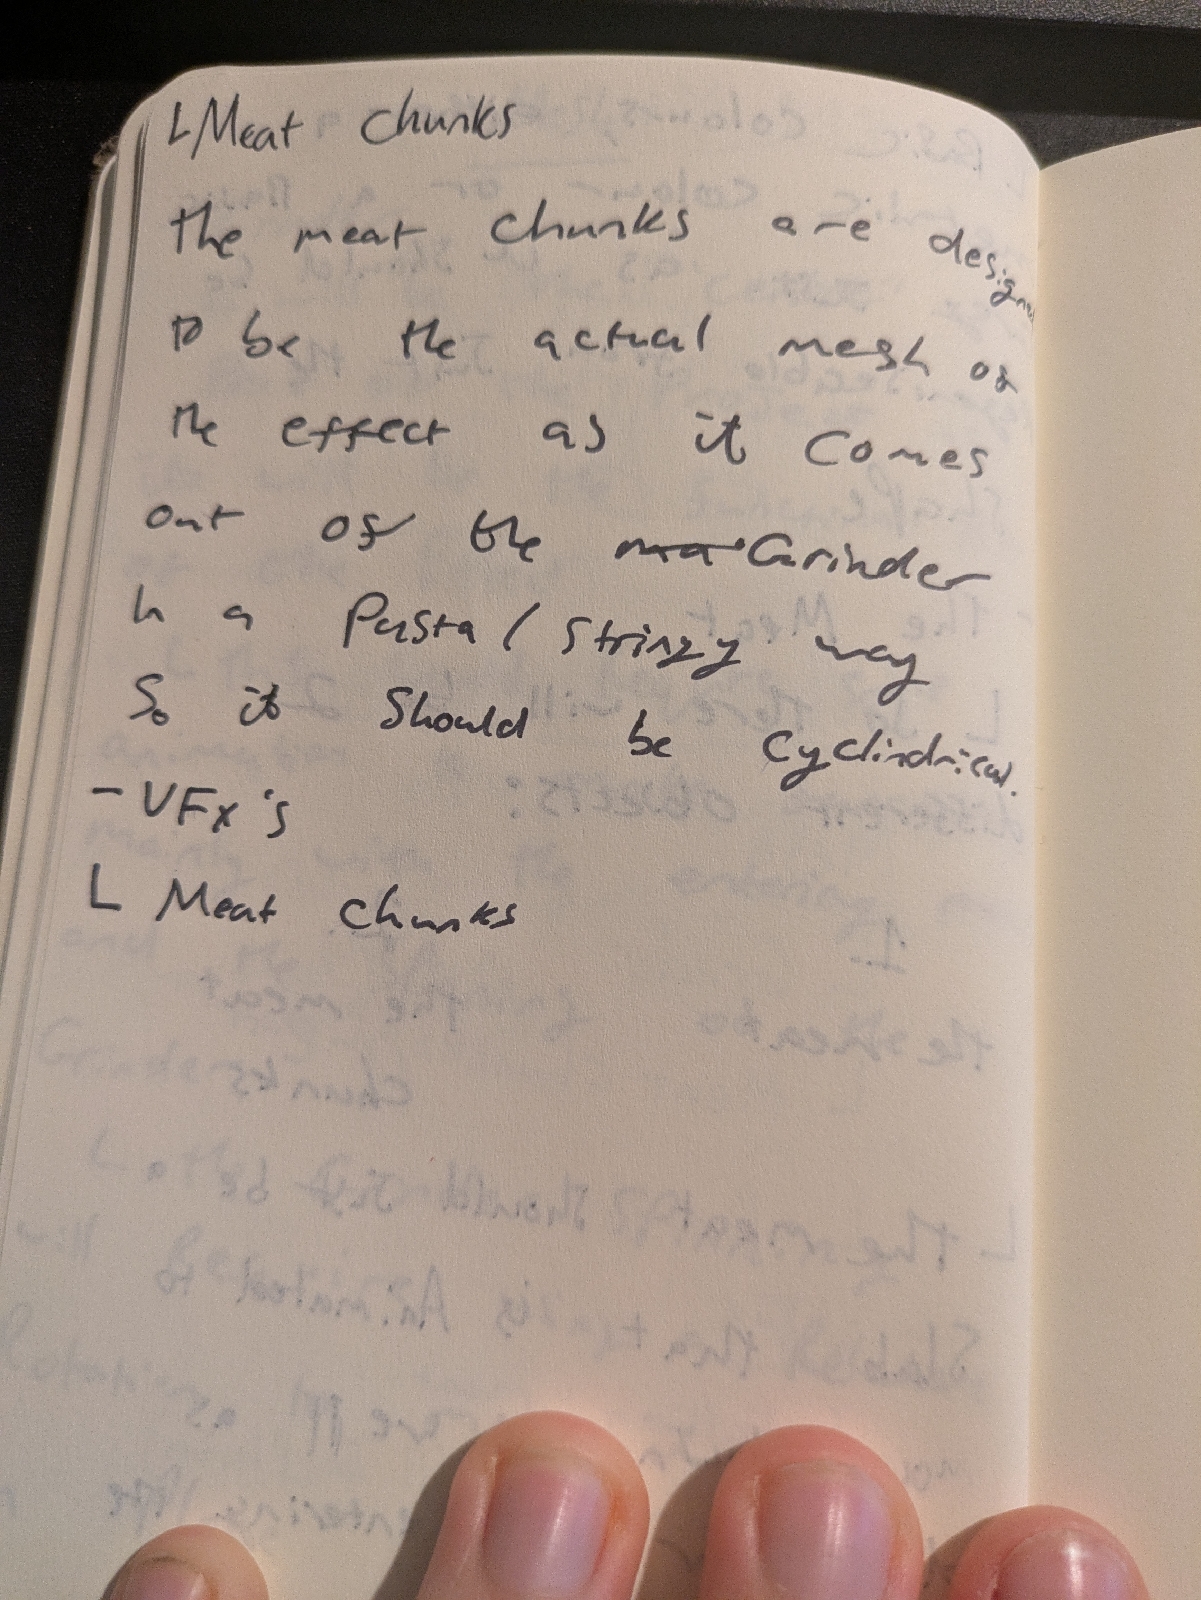 L Meat chunks
The meat chunks are design
to be the actual mesh of
the effect as it comes
out of the Grinder
in a Pasta / Stringy way
So it Should be Cyclindrical.
- VFX's
L Meat chunks